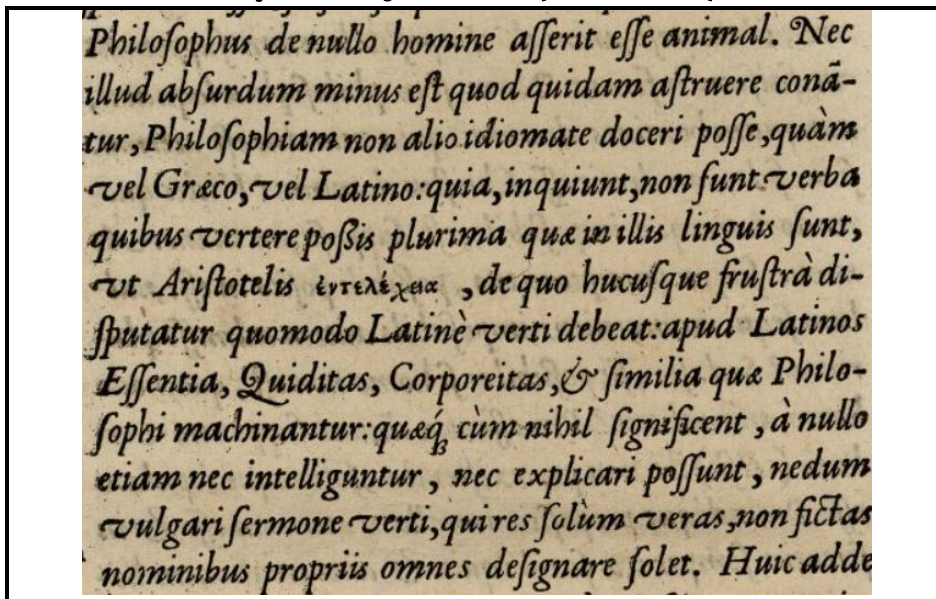 Philoſophus de nullo homine aſſerit eſſe animal. Nec
illud abſurdum minus eſt quod quidam aſtruere conã-
tur, Philoſophiam non alio idiomate doceri poſſe, quàm
vel Græco, vel Latino: quia, inquiunt, non ſunt verba
quibus vertere poſſis plurima quæ in illis linguis ſunt,
vt Ariſtotelis ἐντελέχεια , de quo hucuſque fruſtrà di-
ſputatur quomodo Latinè verti debeat: apud Latinos
Eſſentia, Quiditas, Corporeitas, & ſimilia quæ Philo-
ſophi machinantur: quæq́; cùm nihil ſignificent , à nullo
etiam nec intelliguntur , nec explicari poſſunt , nedum
vulgari ſermone verti, qui res ſolùm veras, non fictas
nominibus propriis omnes deſignare ſolet. Huic adde